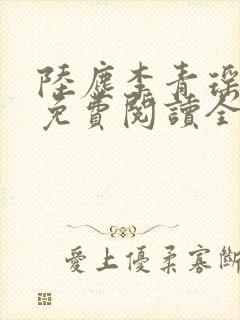 陸塵李青瑤
免費閱讀全
愛上優柔寡斷